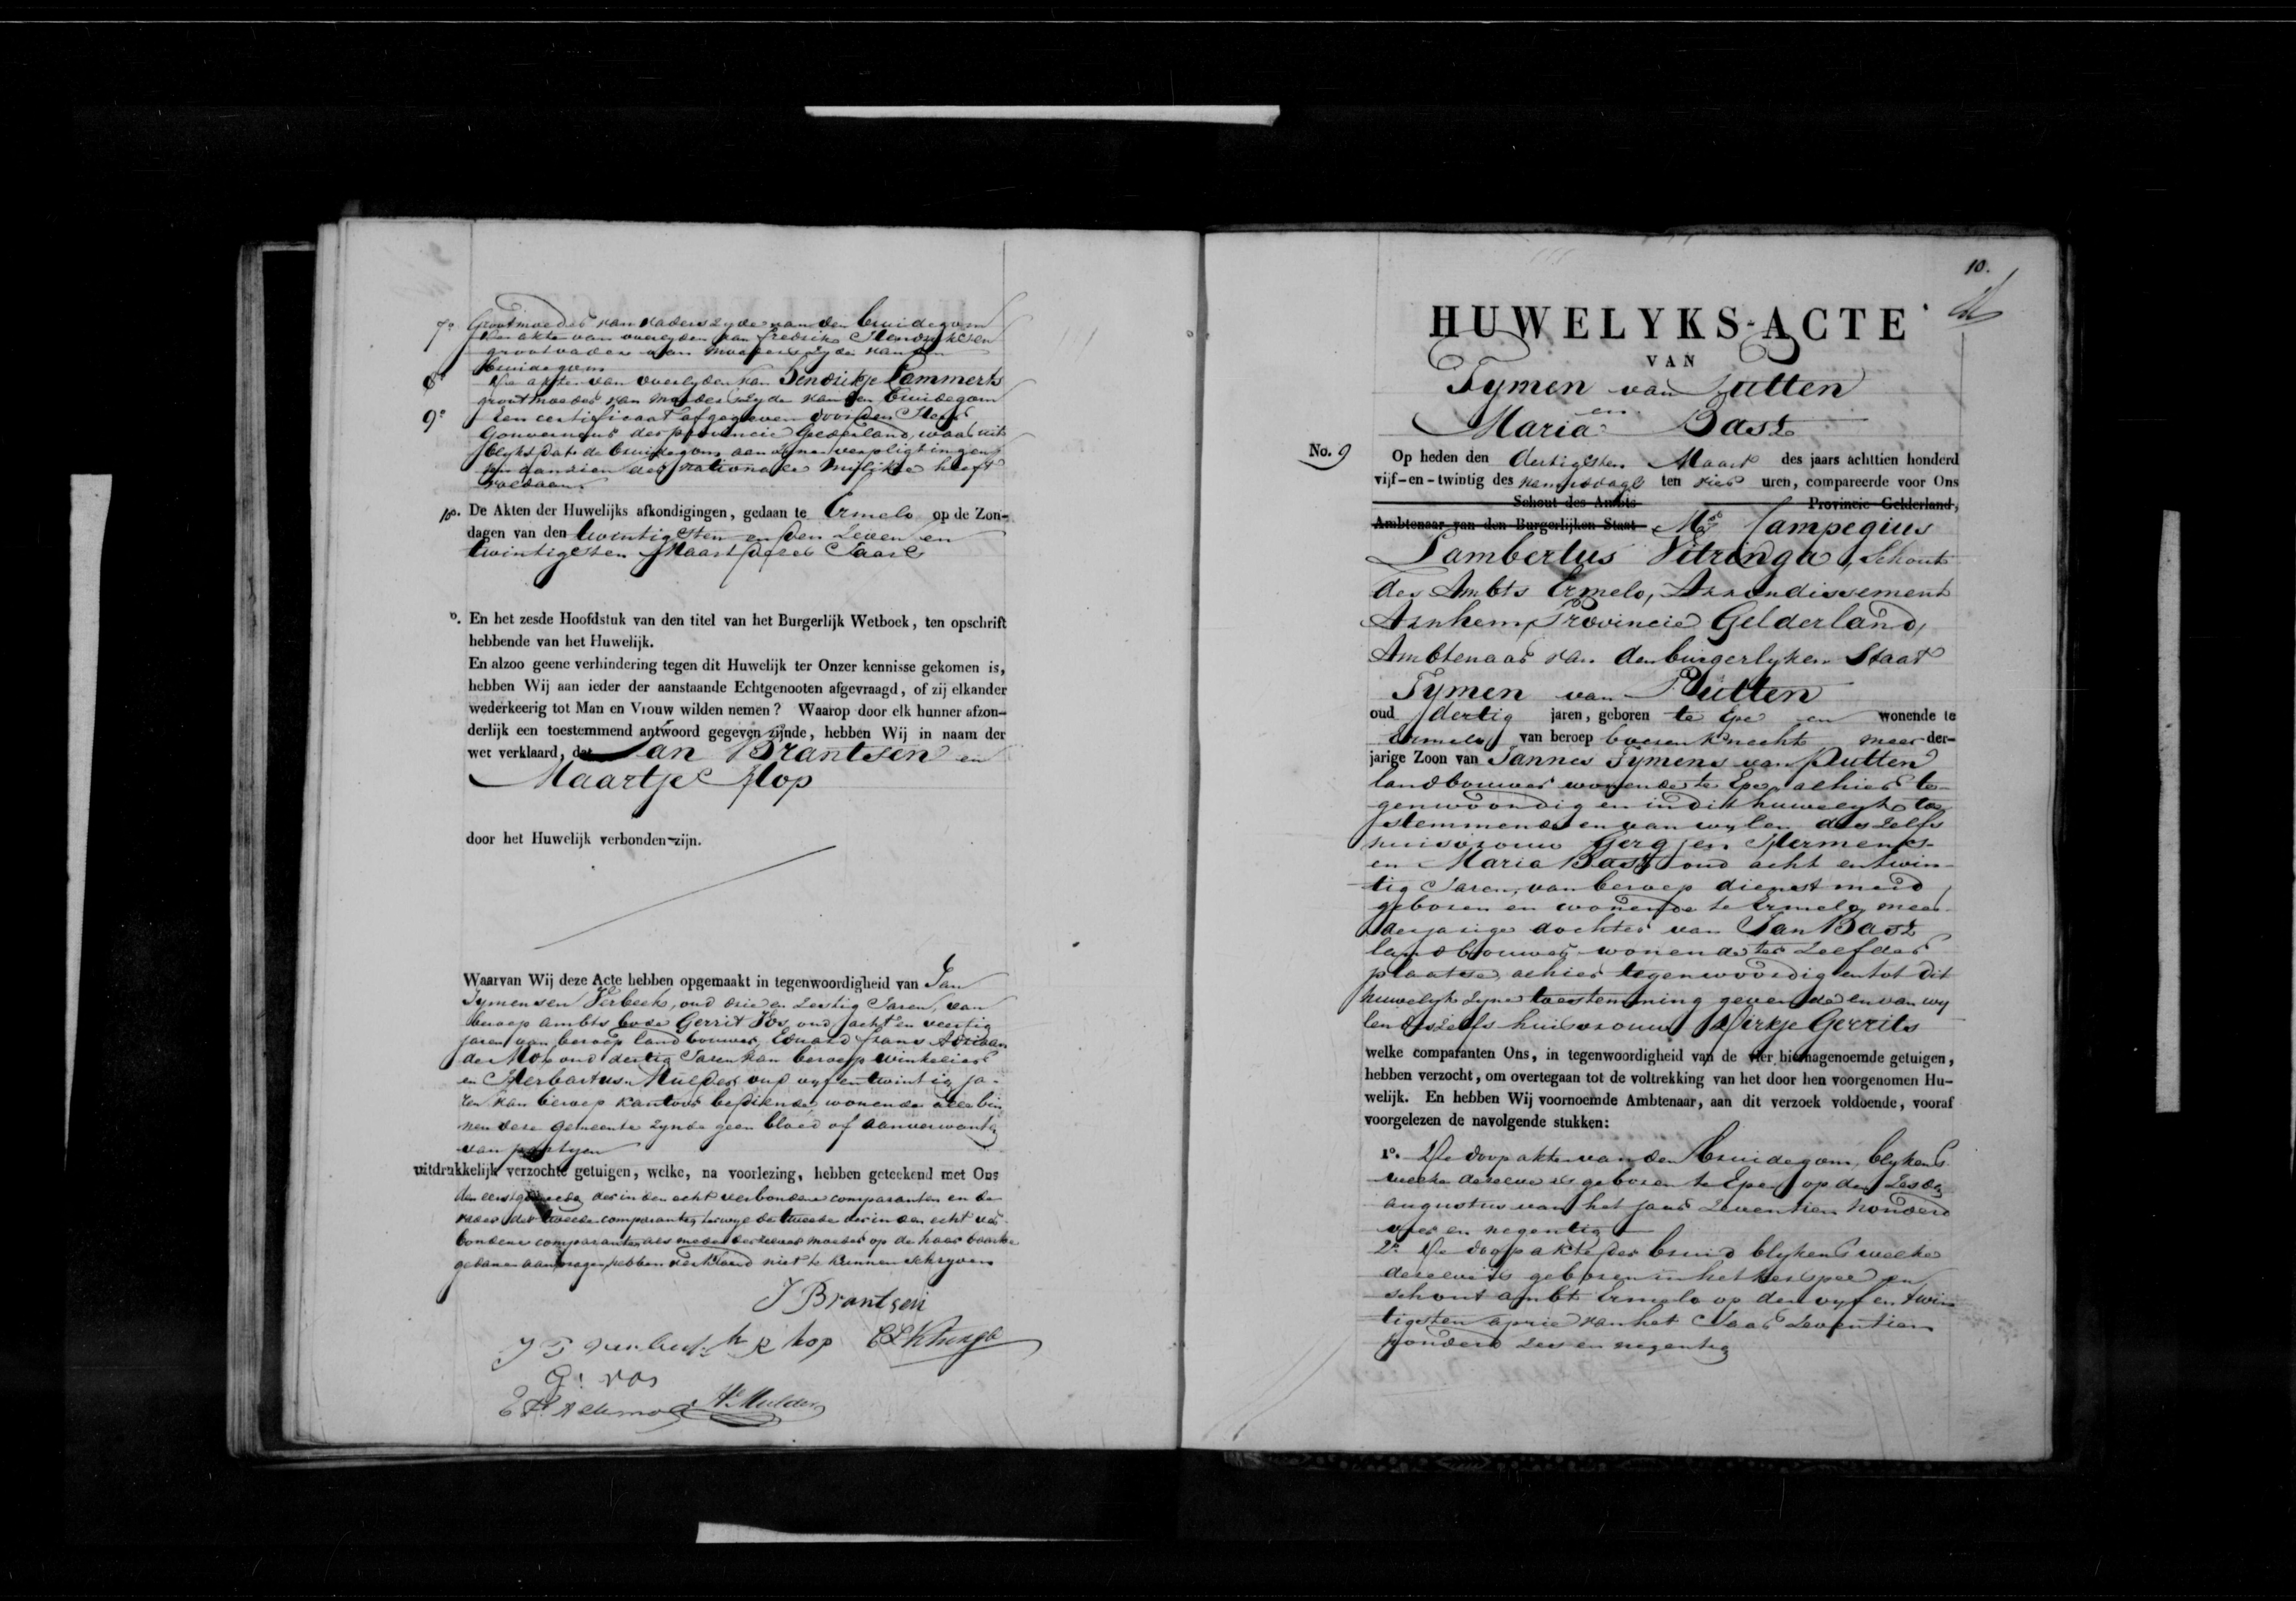 grootmoeder van vaders zyde van den bruidegom
7o. De akte van overlyden van Fredrik Hendriksen
grootvader van moeders zyde van den
bruidegom
8o De akte van overlyden van Hendrikje Lammerts
grootmoeder van moeders zyde van den bruidegom
9o Een certificaat afgegeven door den Heer
Gouverneur der provincie Gelderland, waar uit
blykt dat de bruidegom aan zyne verpligtingen
ten aanzien der nationale Milytie heeft
voldaan.
10. De Akten der Huwelijks afkondigingen, gedaan te Ermelo op de Zon-
dagen van den twintigsten en den zeven en
twintigsten Maart dezes Jaars
o. En het zesde Hoofdstuk van den titel van het Burgerlijk Wetboek, ten opschrift
hebbende van het Huwelijk.
En alzoo geene verhindering tegen dit Huwelijk ter Onzer kennisse gekomen is,
hebben Wij aan ieder der aanstaande Echtgenooten afgevraagd, of zij elkander
wederkeerig tot Man en Vrouw wilden nemen? Waarop door elk hunner afzon-
derlijk een toestemmend antwoord gegeven zijnde, hebben Wij in naam der
wet verklaard, dat Jan Brantsen en
Maartje Hop
door het Huwelijk verbonden zijn.
Waarvan Wij deze Acte hebben opgemaakt in tegenwoordigheid van Jan
Tymensen Verbeek, oud drie en zestig Jaren, van
beroep ambts bode Gerrit Vos, oud acht en veertig
jaren van beroep landbouwer, Eduard Frans Adriaan
oud dertig Jaren van beroep winkelier
en Herbartus Mulder, oud vyf en twintig ja-
ren van beroep kantoor bediende, wonende alle bin
nen deze gemeente zynde geen bloed of aanverwanten
van partyen
uitdrukkelijk verzochte getuigen, welke, na voorlezing, hebben geteekend met Ons
den eerstgemelde der in den echt verbondene comparanten en de
vader der tweede comparante, terwyl de tweede der in den echt ver
bondene comparanten als mede derzelver moeder op de haar daartoe
gedane aanvragen hebben verklaard niet te kunnen schryven
J Brantsen
J T verbeek h k hop
G: vos
H. Mulder
10.
HUWELYKS-ACTE
VAN
Tymen van Putten
en
Maria Bast
No. 9
Op heden den dertigsten Maart des jaars achttien honderd
vijf-en-twintig des namiddags ten vier uren, compareerde voor Ons
Schout des Ambts Provincie Gelderland,
Ambtenaar van den Burgerlijken Staat Mr. Campegius
Lambertus Vitringa, Schout
des Ambts Ermelo, Arrondissement
Arnhem, Provincie Gelderland,
Ambtenaar van den burgerlyken Staat
Tymen van Putten
oud dertig jaren, geboren te Epe en wonende te
Ermelo van beroep boerenknecht meer der-
jarige Zoon van Jannes Tymens van Putten
landbouwer wonende te Epe, alhier te-
genwoordig en in dit huwelyk toe
stemmende en van wylen deszelfs
huisvrouw Gergjen Hermens
en Maria Bast oud acht en twin-
tig Jaren, van beroep dienstmeid
geboren en wonende te Ermelo meer-
derjarige dochter van Jan Bast
landbouwer wonende ter zelfder
plaatse, alhier tegenwoordig en tot dit
huwelyk zyne toestemming gevende en van wy
len deszelfs huisvrouw Dirkje Gerrits
welke comparanten Ons, in tegenwoordigheid van de vier hiernagenoemde getuigen,
hebben verzocht, om overtegaan tot de voltrekking van het door hen voorgenomen Hu-
welijk. En hebben Wij voornoemde Ambtenaar, aan dit verzoek voldoende, vooraf
voorgelezen de navolgende stukken:
1o. De doopakte van den bruidegom, blykens
welke dezelve is geboren te Epe op den zesden
augustus van het jaar zeventien honderd
vier en negentig
2o. De doopakte der bruid blykens welke
dezelve is geboren in het kerspel en
schout ambt Ermelo op den vyf en twin
tigsten april van het Jaar zeventien
honderd zes en negentig